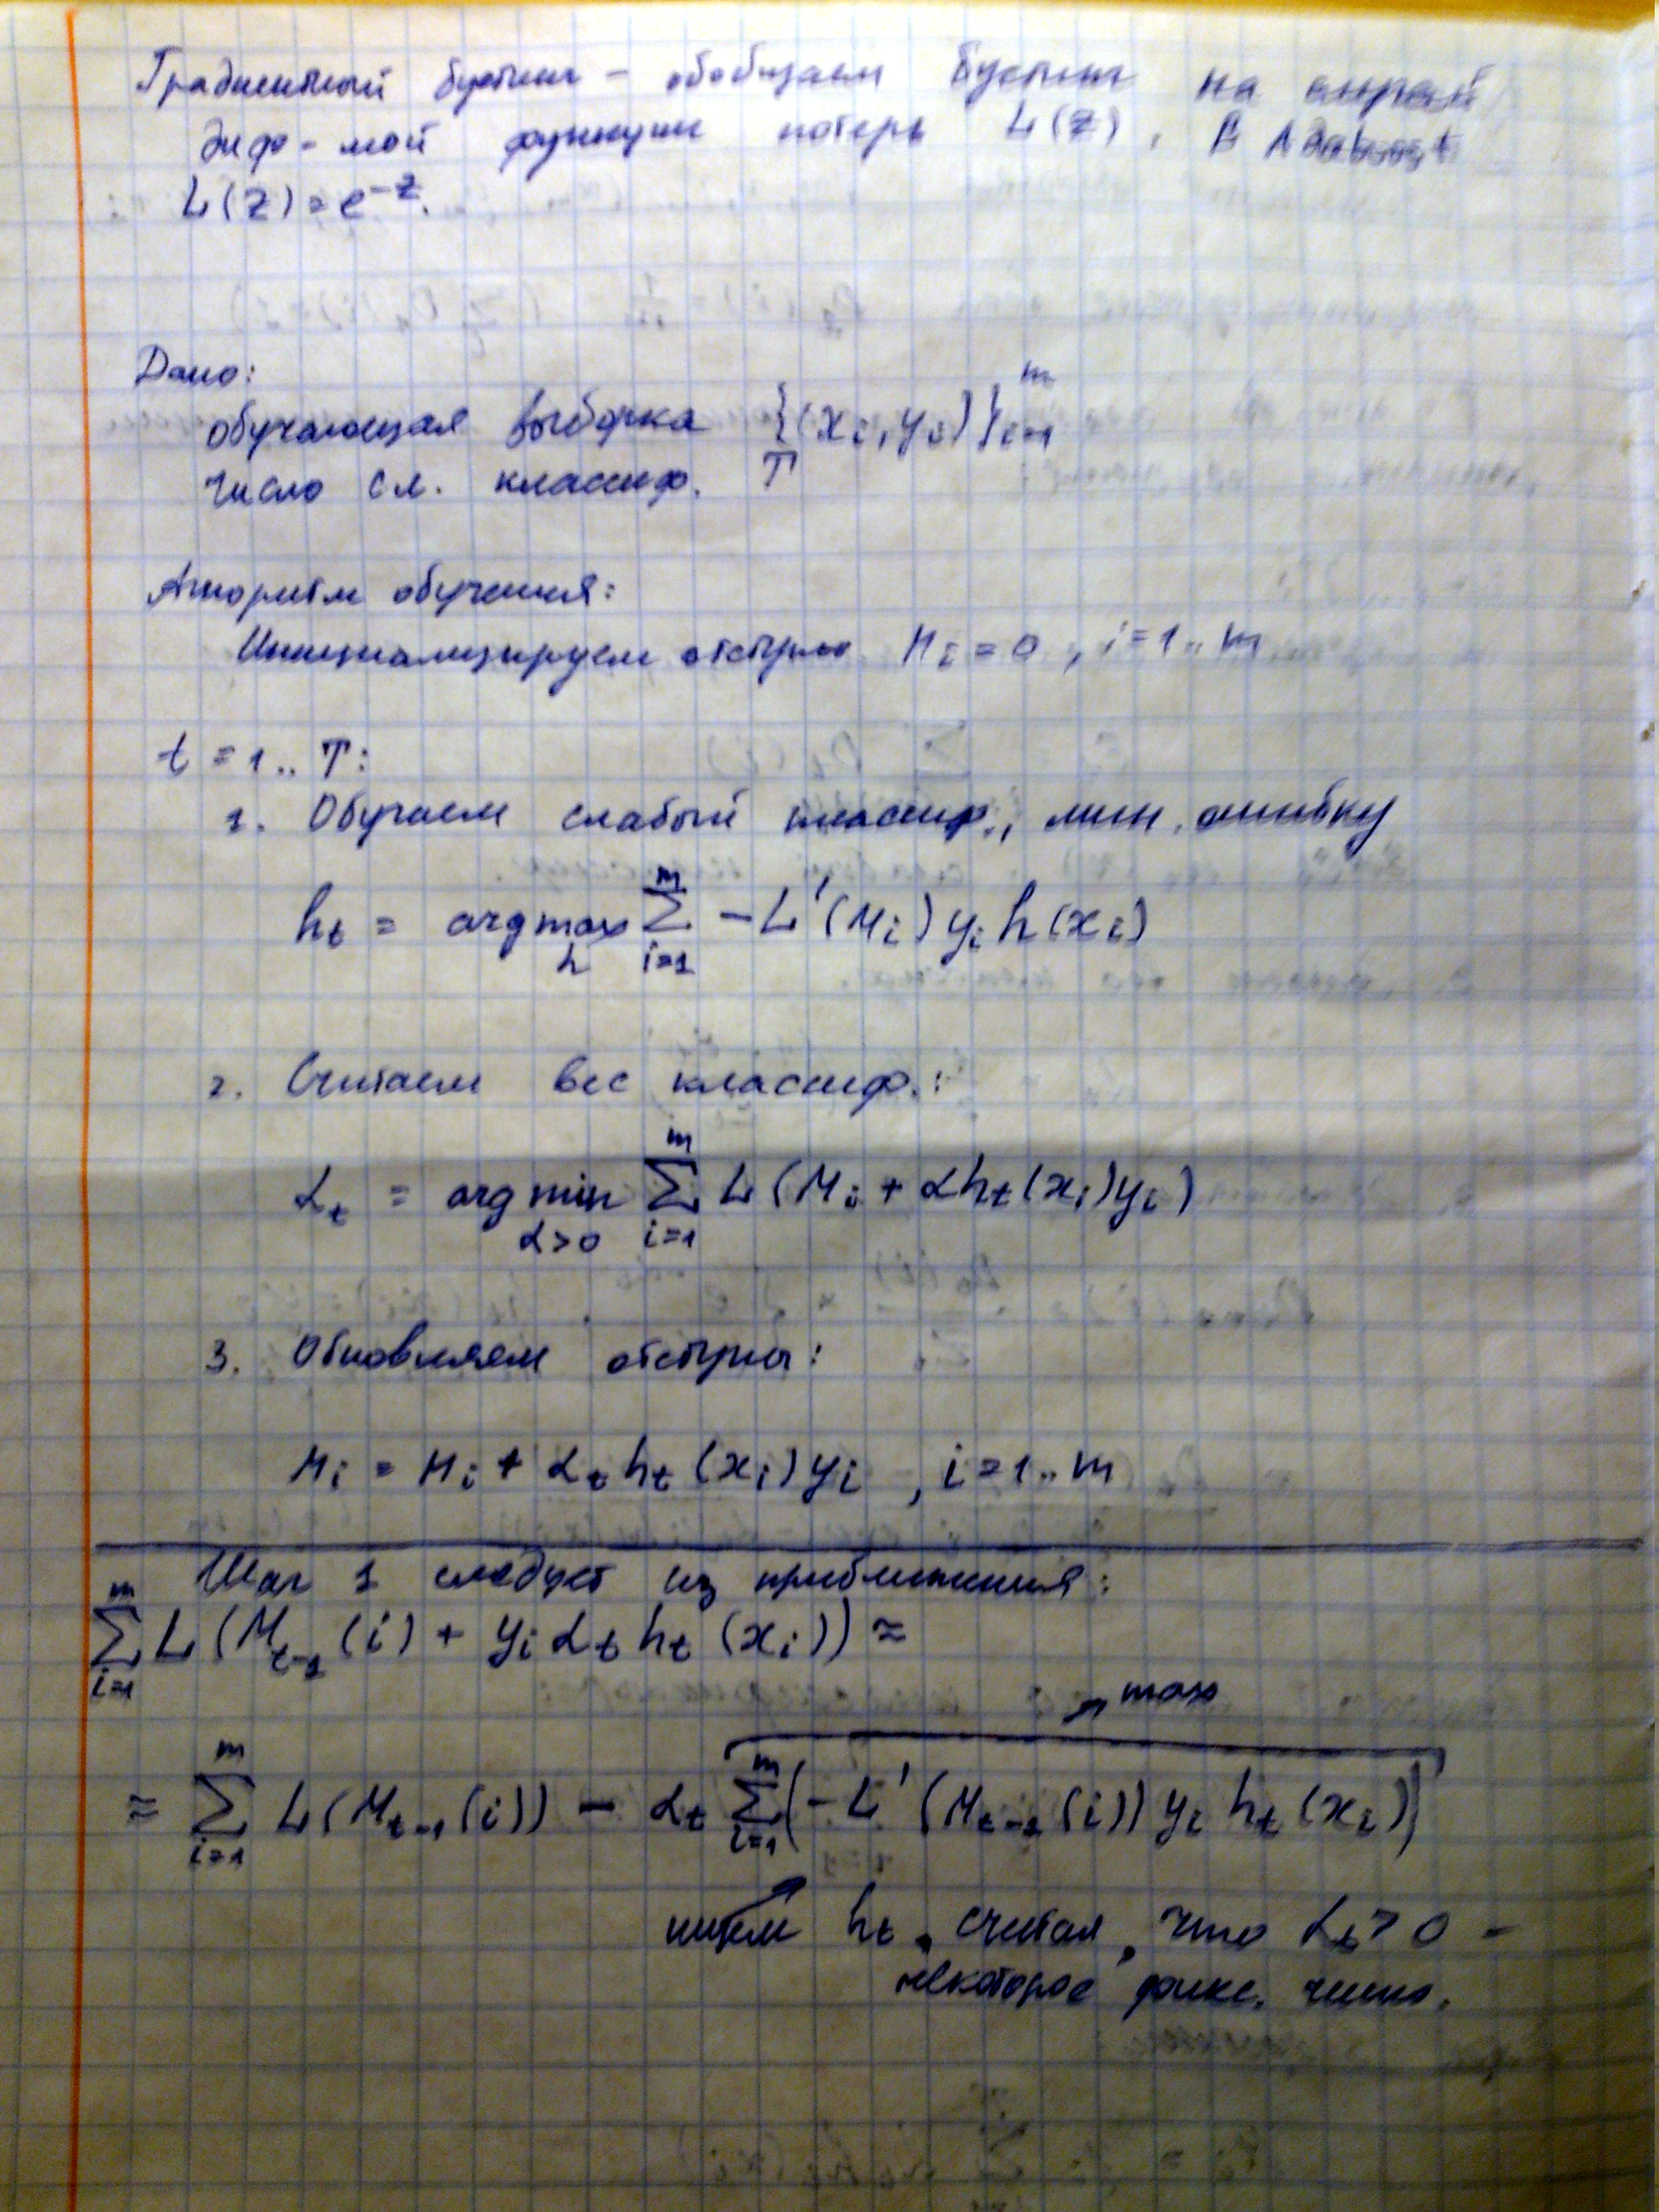 Градиентный бустинг - обобщаем бустинг на
диф-мой функции потерь L(z). В Adaboost
L(z) = e^{-z}.
Дано:
обучающая выборка {(x_i, y_i)}_{i=1}^m
число сл. классиф. T
Алгоритм обучения:
Инициализируем отступы M_i = 0, i = 1..m
t = 1.. T:
1. Обучаем слабый классиф., мин. ошибку
h_t = argmax_h ∑_{i=1}^m -L'(M_i) y_i h(x_i)
2. Считаем вес классиф.:
α_t = argmin_{α>0} ∑_{i=1}^m L(M_i + α h_t(x_i) y_i)
3. Обновляем отступы:
M_i = M_i + α_t h_t(x_i) y_i, i = 1..m
Шаг 1 следует из приближения:
∑_{i=1}^m L(M_{t-1}(i) + y_i α_t h_t(x_i)) ≈
→ max
≈ ∑_{i=1}^m L(M_{t-1}(i)) - α_t ∑_{i=1}^m (-L'(M_{t-1}(i)) y_i h_t(x_i))
ищем h_t, считая, что α_t > 0 -
некоторое фикс. число.